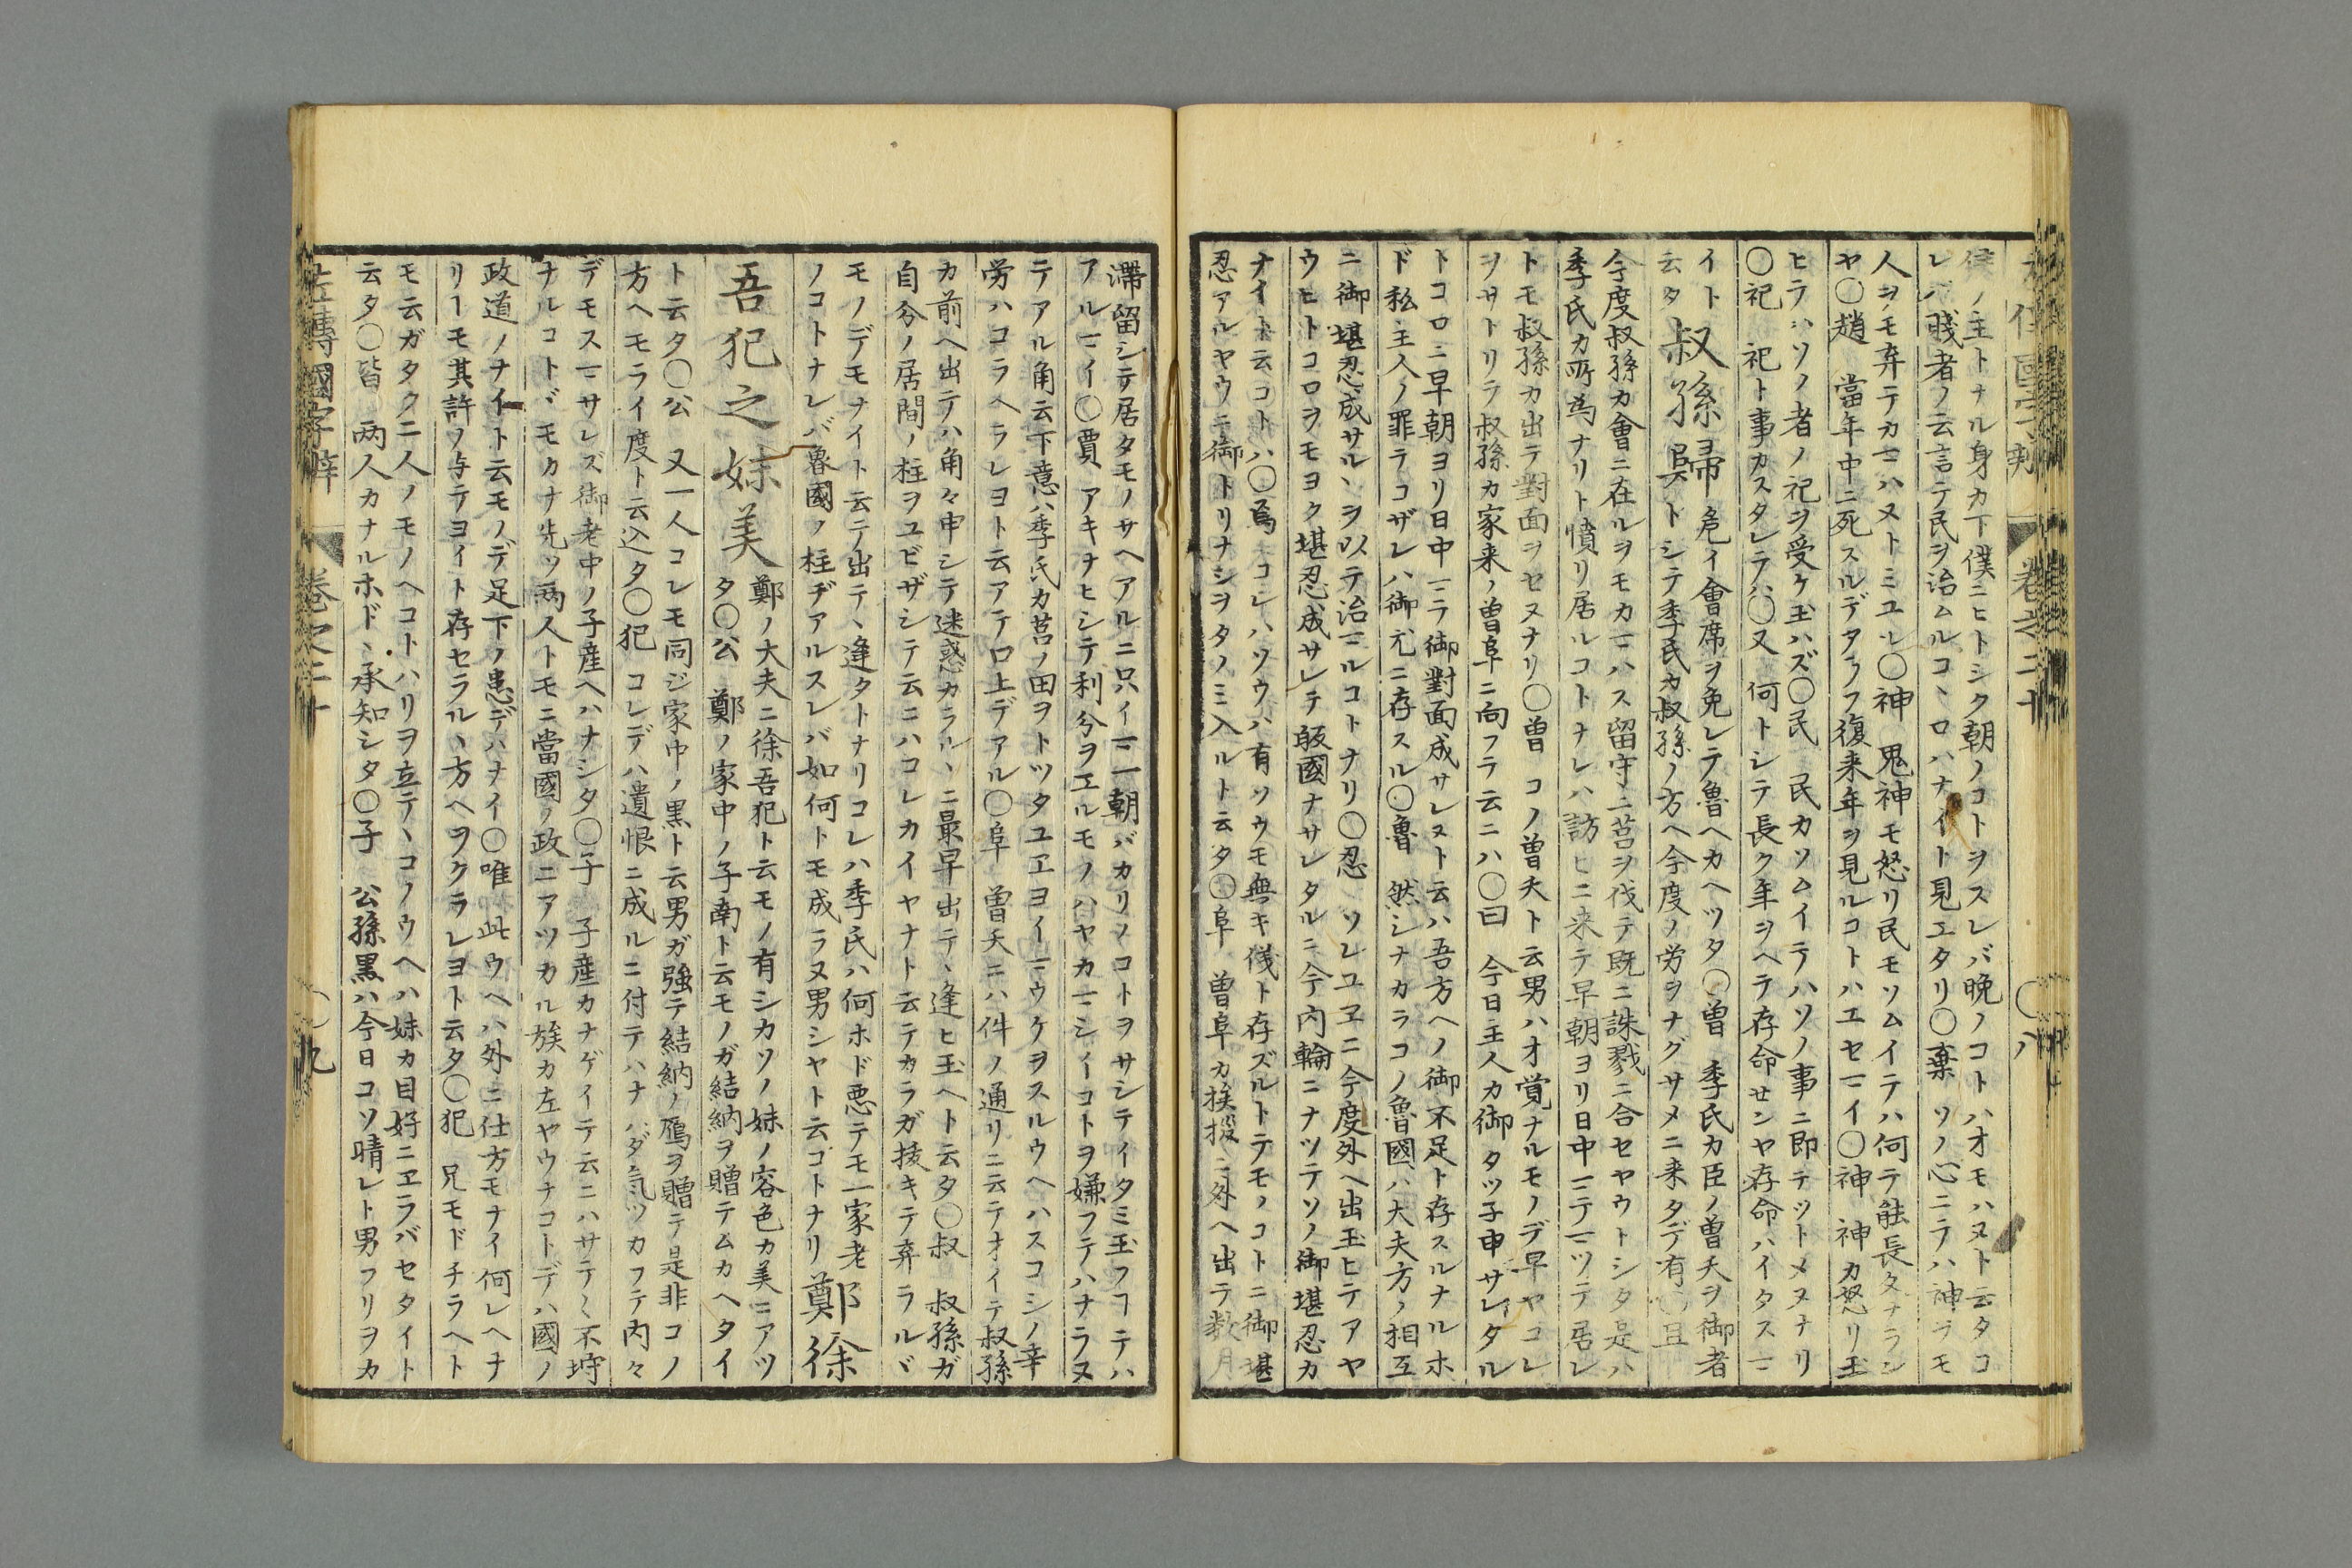 侯ノ主トナル身カ下僕ニヒトシク朝ノコトヲスレバ晩ノコトハオモハヌト云タコ
レバ賤者ノ云言テ民ヲ治ムルコヽロハナイト見エタリ〇棄 ソノ心ニテハ神ヲモ
人ヲモ弃テカヿハストミユル〇神 鬼神モ怒リ民モソムイテハ何テ能長タナラン
ヤ〇趙 當年中ニ死スルデアラフ復来年ヲ見ルコトハエセヿイ〇神 神カ怒リ玉
ヒテハソノ者ノ祀ヲ受ケ玉ハズ〇民 民カソムイテハソノ事ニ即テツトメヌナリ
〇祀 祀ト事カスタレテハ〇又 何トシテ長ク年ヲヘテ存命センヤ存命ハイタスヿ
イト 叔孫歸 危イ會席ヲ免レテ魯ヘカヘツタ〇曽 季氏カ臣ノ曽夭ヲ御者
云タ 呉トシテ季氏カ叔孫ノ方ヘ今度ノ労ヲナグサメニ来タデ有〇且
今度叔孫カ會ニ在ルヲモカヿハス留守ニ莒ヲ伐テ既ニ誅戮ニ合セヤウトシタ是ハ
季氏カ所為ナリト憤リ居ルコトナレハ訪ヒニ来テ早朝ヨリ日中ヿテヿツテ居レ
トモ叔孫カ出テ對面ヲセヌナリ〇曽 コノ曽夭ト云男ハ才覚ナルモノデ早ヤコレ
ヲサトリテ叔孫カ家来ノ曽阜ニ向フテ云ニハ〇曰 今日主人カ御タツ子申サレタル
トコロニ早朝ヨリ日中ヿテ御對面成サレヌト云ハ吾方ヘノ御不足ト存スルナルホ
ド私主人ノ罪テコザレハ御尤ニ存スル〇魯 然シナカラコノ魯國ハ大夫方ノ相互
ニ御堪忍成サルヽヲ以テ治ヿルコトナリ〇忍 ソレユヱニ今度外ヘ出玉ヒテアヤ
ウヒトコロヲモヨク堪忍成サレテ皈國ナサレタルニ今内輪ニナツテソノ御堪忍カ
ナイト云コトハ〇焉 コレハソウハ有ソウモ無キ儀ト存ズルトテモノコトニ御堪
忍アルヤウニ御トリナシヲタノミ入ルト云タ〇阜 曽阜カ挨拶ニ外ヘ出テ数月
滞留シテ居タモノサヘアルニ只イヿ一朝バカリノコトヲサシテイタミ玉フヿテハ
アルヿイ〇賈 アキナヒシテ利分ヲエルモノハヤカヿシイコトヲ嫌フテハナラヌ
テアル角云下意ハ季氏カ莒ノ田ヲトツタユエヨイヿウケヲスルウヘハスコシノ辛
労ハコラヘラレヨト云アテロ上デアル〇阜 曽夭ニハ件ノ通リニ云テオイテ叔孫
カ前ヘ出テハ角々申シテ迷惑カラルヽニ最早出テヽ逢ヒ玉ヘト云タ〇叔 叔孫ガ
自分ノ居間ノ柱ヲユビザシテ云ニハコレカイヤナト云テカラガ抜キテ弃ラルヾ
モノデモナイト云テ出テヽ逢タトナリコレハ季氏ハ何ホド悪テモ一家老
ノコトナレバ魯國ノ柱ヂアルスレバ如何トモ成ラヌ男シヤト云コトナリ 鄭徐
吾犯之妹美 鄭ノ大夫ニ徐吾犯ト云モノ有シカソノ妹ノ容色カ美ニアツ
タ〇公 鄭ノ家中ノ子南ト云モノガ結納ヲ贈テムカヘタイ
ト云タ〇公 又一人コレモ同ジ家中ノ黒ト云男ガ強テ結納ノ鴈ヲ贈テ是非コノ
方ヘモライ度ト云込タ〇犯 コレデハ遺恨ニ成ルニ付テハナハダ気ツカフテ内々
デモスヿサレズ御老中ノ子産ヘハナシタ〇子 子産カナゲイテ云ニハサテ〱不埒
ナルコトバモカナ先ツ両人トモニ當國ノ政ニアツカル族カ左ヤウナコトデハ國ノ
政道ノナイト云モノデ足下ノ患デハナイ〇唯 此ウヘハ外ニ仕方モナイ何レヘナ
リーモ其許ノ与テヨイト存セラルヽ方ヘヲクラレヨト云タ〇犯 兄モドチラヘト
モ云ガタク二人ノモノヘコトハリヲ立テヽコノウヘハ妹カ目好ニエラバセタイト
云タ〇皆 両人カナルホドヽ承知シタ〇子 公孫黒ハ今日コソ晴レト男フリヲカ
左傳國字辯 巻之二十 〇九